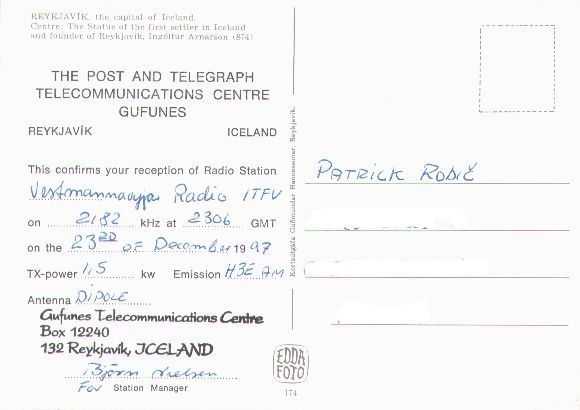 REYKJAVÍK, the capital of Iceland.
Centre: The Statue of the first settler in Iceland
and founder of Reykjavík, Ingólfur Arnarson (874)
THE POST AND TELEGRAPH
TELECOMMUNICATIONS CENTRE
GUFUNES
REYKJAVÍK ICELAND
This confirms your reception of Radio Station
Vestmannaeyja Radio ITFV
on 2182 kHz at 2306 GMT
on the 23RD OF December 1997
TX-power 1,5 kw Emission H3E AM
Antenna DIPOLE
Gufunes Telecommunications Centre
Box 12240
132 Reykjavík, ICELAND
Björn Nielsen
For Station Manager
Kortaútgáfa Guðmundar Hannessonar, Reykjavík.
PATRICK ROBIČ
EDDA
FOTO
174